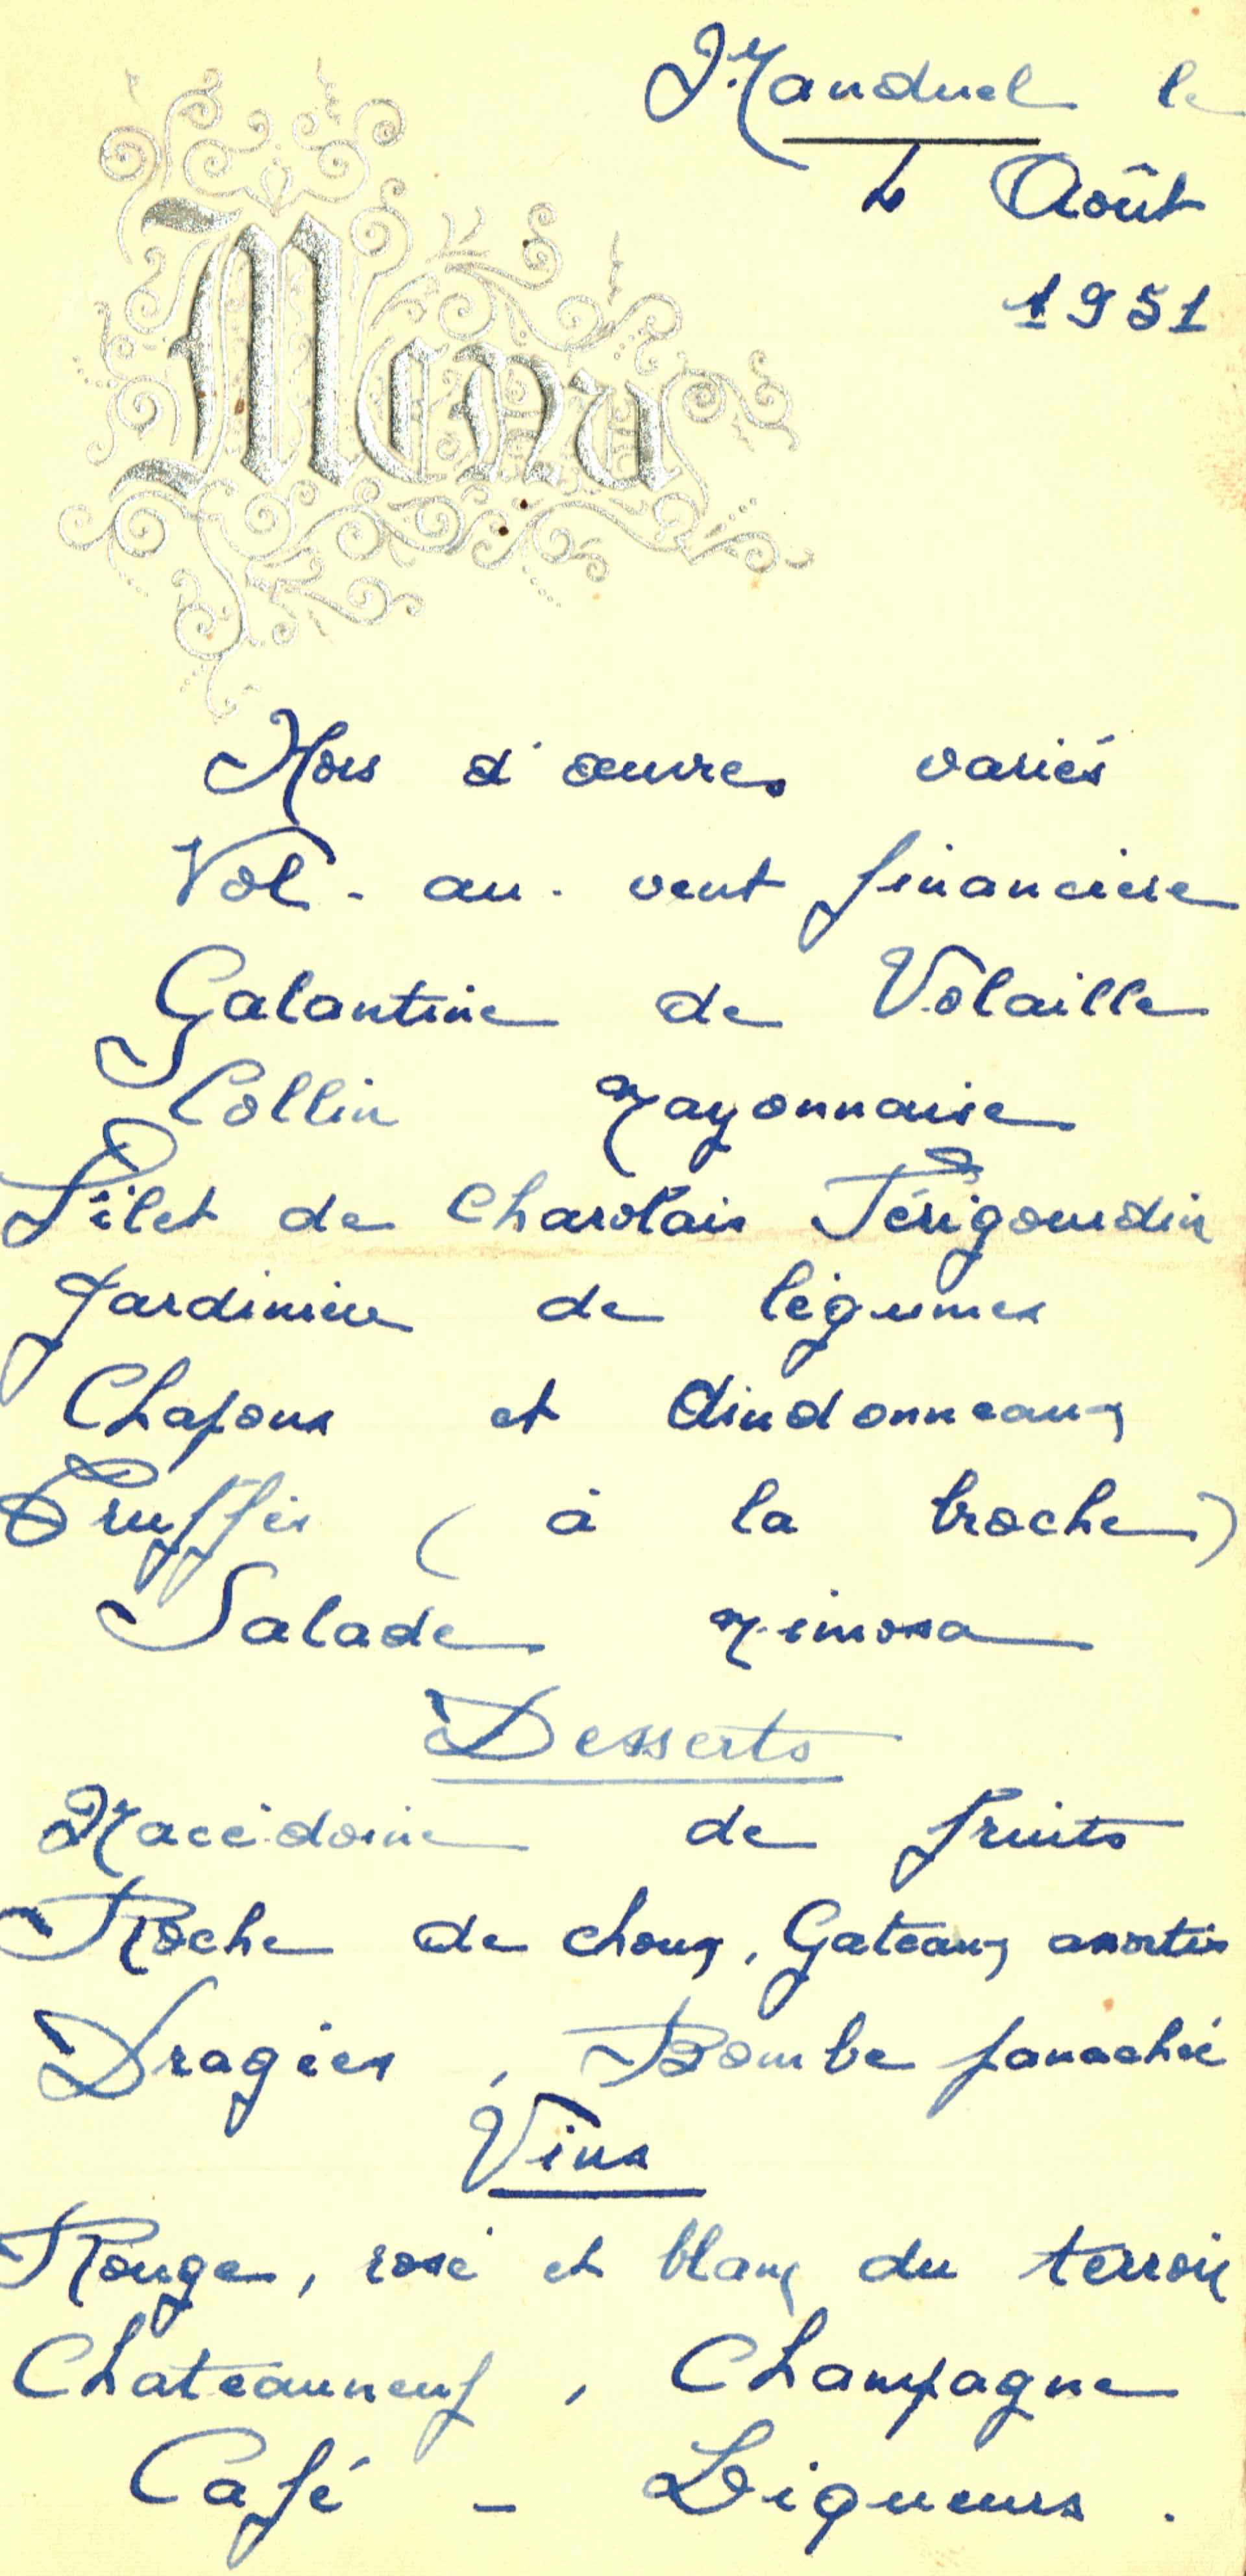 Manduel le
4 Août
1951
Menu
Hors d'œuvres variés
Vol-au-vent financière
Galantine de Volaille
Collin Mayonnaise
Filet de Charolais Périgourdin
Jardinière de légumes
Chapons et dindonneaux
Truffés (à la broche)
Salade Mimosa
Desserts
Macédoine de fruits
Roche de choux, Gateaux assortis
Dragées, Bombe panachée
Vins
Rouge, rosé et blanc du terroir
Chateauneuf, Champagne
Café - Liqueurs.